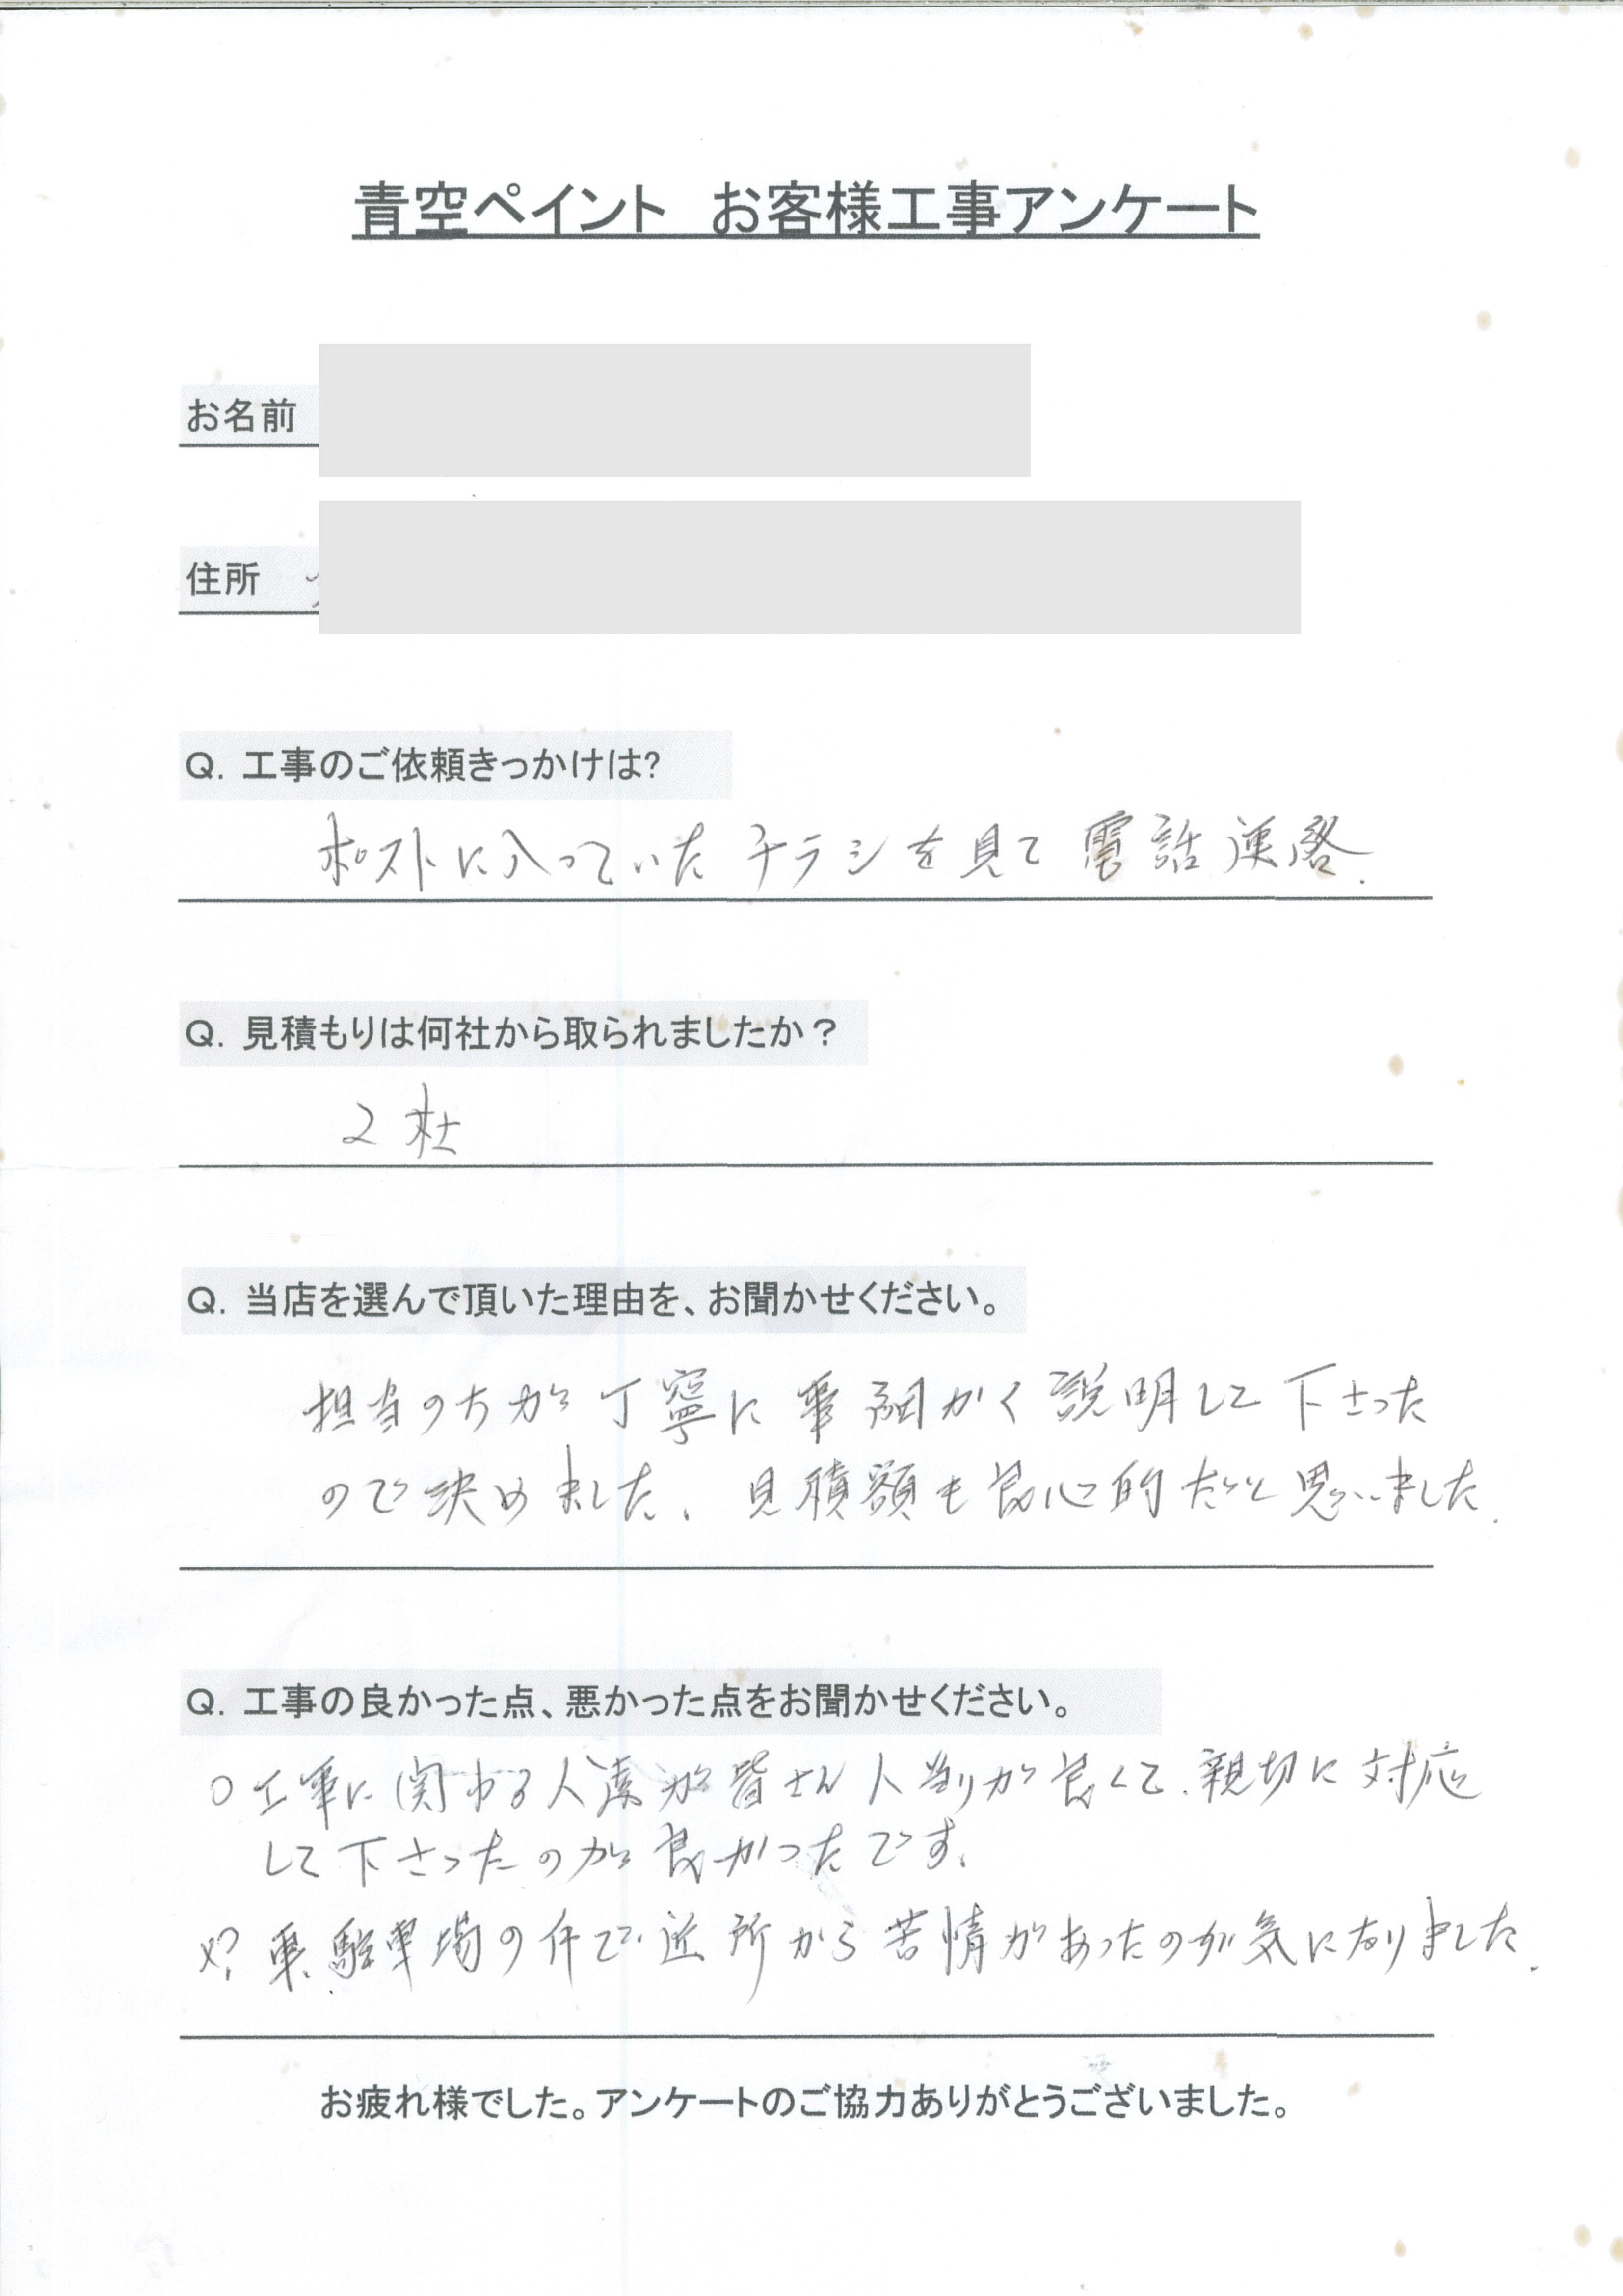 青空ペイント　お客様工事アンケート
お名前
住所
Q. 工事のご依頼きっかけは?
ポストに入っていたチラシを見て電話連絡.
Q. 見積もりは何社から取られましたか？
2社
Q. 当店を選んで頂いた理由を、お聞かせください。
担当の方が丁寧に事細かく説明して下さった
ので決めました。見積額も良心的だと思いました.
Q. 工事の良かった点、悪かった点をお聞かせください。
○工事に関わる人達が皆さん人当りが良くて、親切に対応
して下さったのが良かったです。
×? 車、駐車場の件で近所から苦情があったのが気になりました.
お疲れ様でした。アンケートのご協力ありがとうございました。